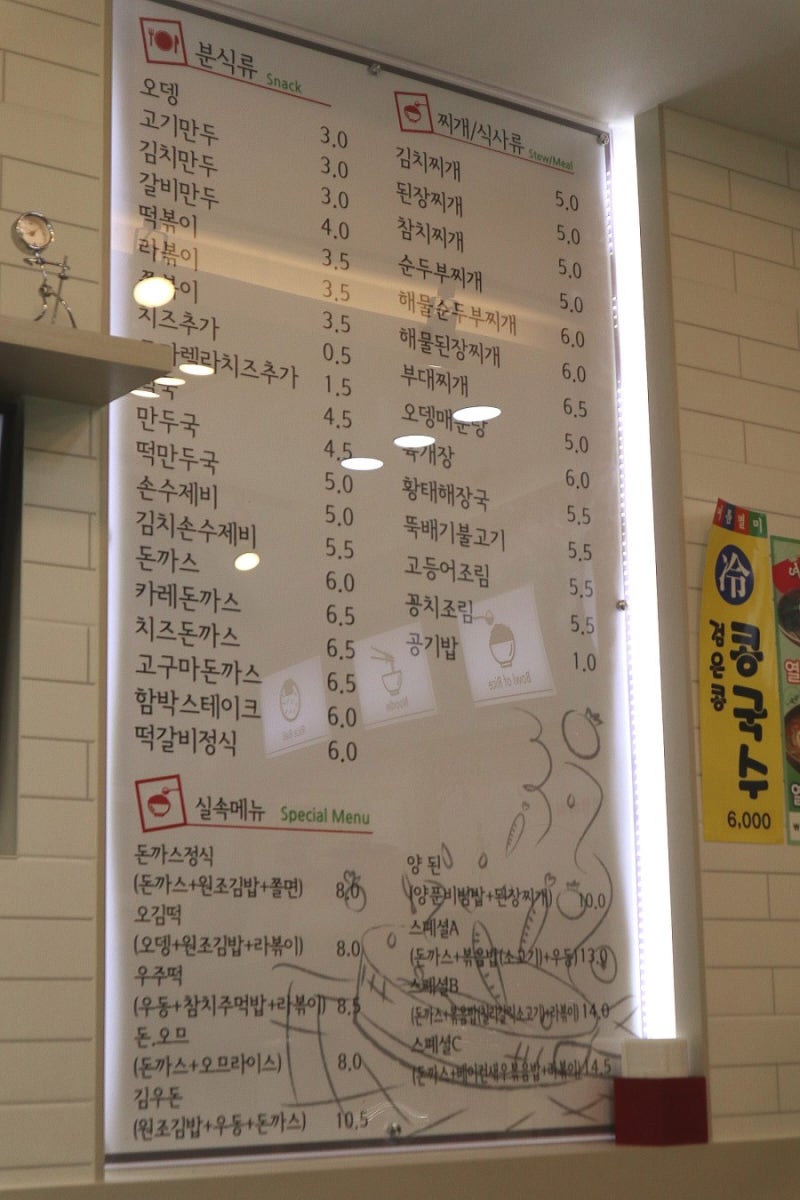 분식류 Snack
오뎅 3.0
고기만두 3.0
김치만두 3.0
갈비만두 4.0
떡볶이 3.5
라볶이 3.5
쫄볶이 3.5
치즈추가 0.5
모짜렐라치즈추가 1.5
떡국 4.5
만두국 4.5
떡만두국 5.0
손수제비 5.0
김치손수제비 5.5
돈까스 6.0
카레돈까스 6.5
치즈돈까스 6.5
고구마돈까스 6.5
함박스테이크 6.0
떡갈비정식 6.0
찌개/식사류 Stew/Meal
김치찌개 5.0
된장찌개 5.0
참치찌개 5.0
순두부찌개 5.0
해물순두부찌개 6.0
해물된장찌개 6.0
부대찌개 6.5
오뎅매운탕 5.0
육개장 6.0
황태해장국 5.5
뚝배기불고기 5.5
고등어조림 5.5
꽁치조림 5.5
공기밥 1.0
실속메뉴 Special Menu
돈까스정식
(돈까스+원조김밥+쫄면) 8.0
오김떡
(오뎅+원조김밥+라볶이) 8.0
우주떡
(우동+참치주먹밥+라볶이) 8.5
돈.오므
(돈까스+오므라이스) 8.0
김우돈
(원조김밥+우동+돈까스) 10.5
양 된
(양푼비빔밥+된장찌개) 10.0
스페셜A
(돈까스+볶음밥(소고기)+우동) 13.0
스페셜B
(돈까스+볶음밥(칠리갈릭소고기)+라볶이) 14.0
스페셜C
(돈까스+베이컨새우볶음밥+라볶이) 14.5
Rice Roll
Noodle
Bowl of Rice
여름별미
冷
검은콩
콩국수
6,000
열